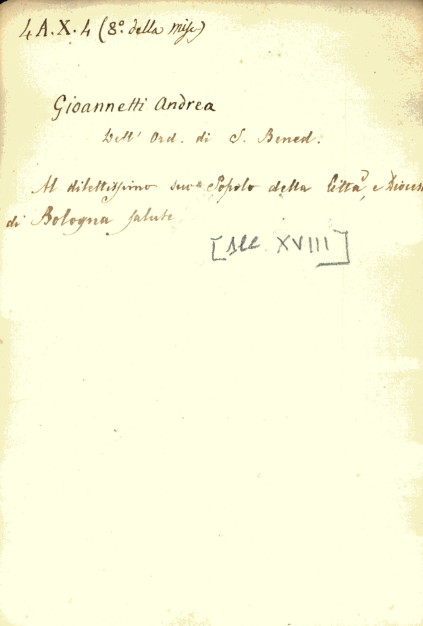 4 A. X. 4 (8.º della Misc)
Gioannetti Andrea
Dell' Ord. di S. Bened.
Al dilettissimo suo Popolo della Città, e Dioces
di Bologna salute
[Sec XVIII]